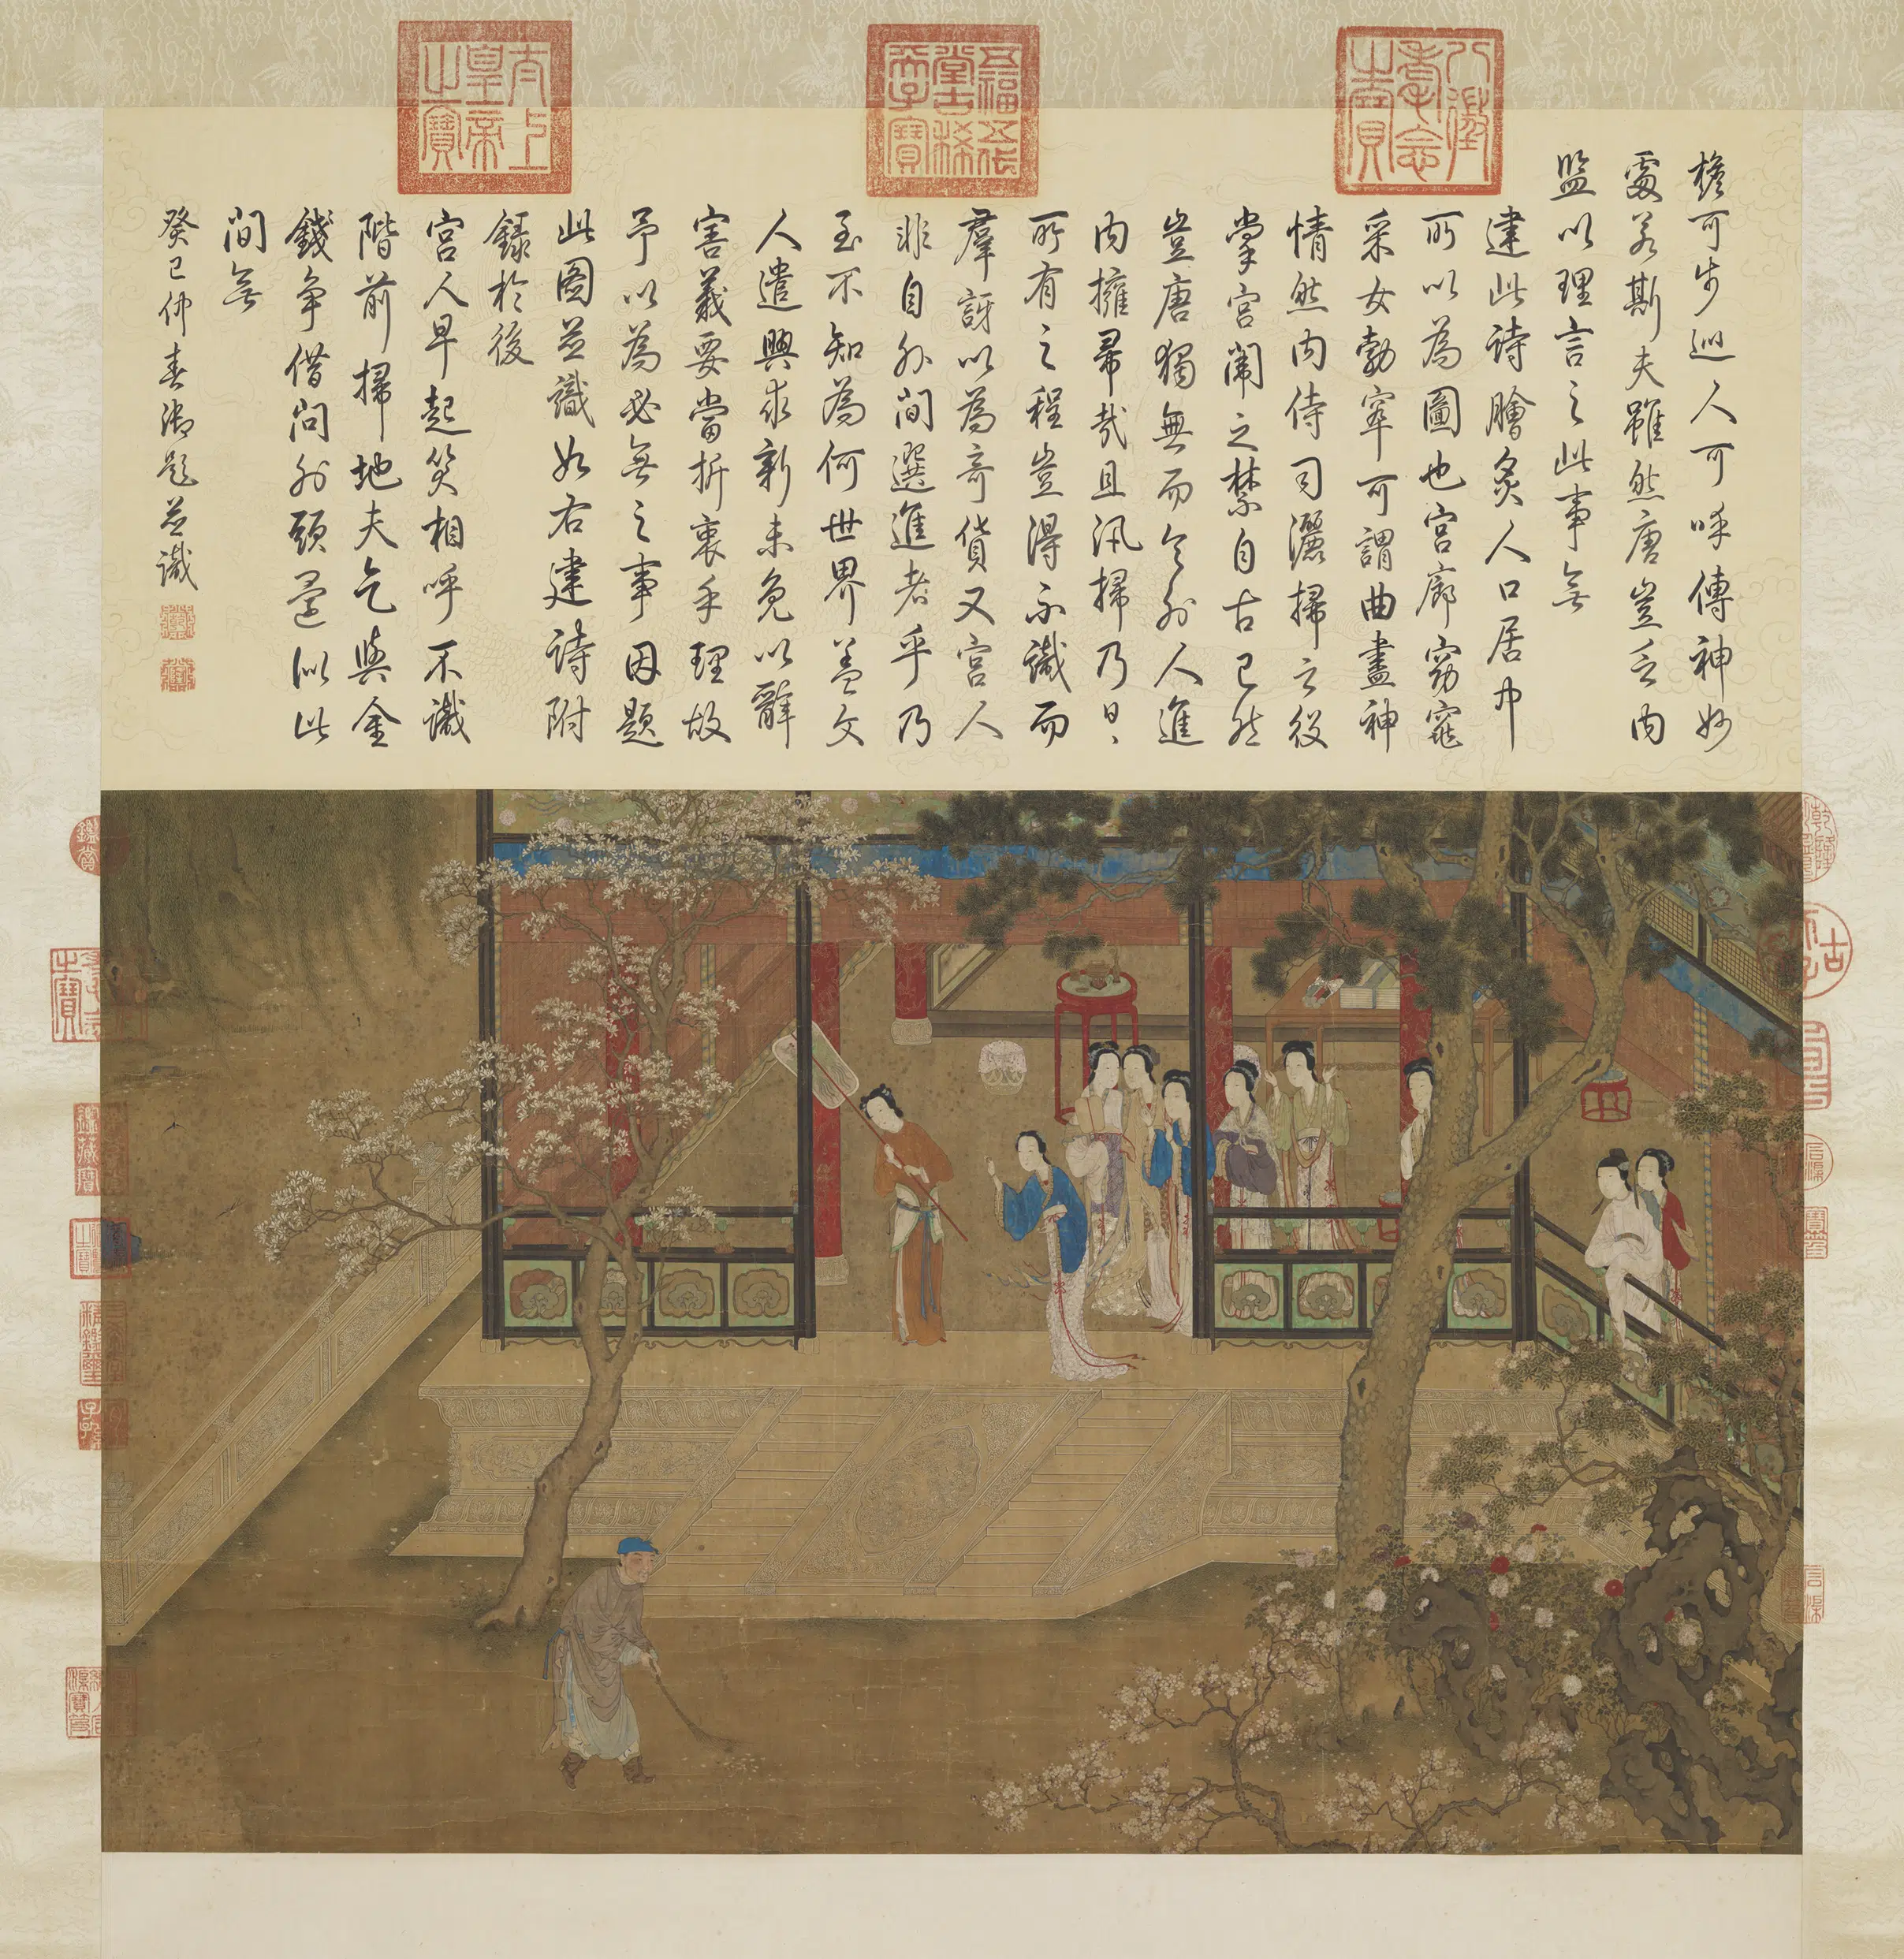 八徵耄念之寶
五福五代堂古稀天子寶
太上皇帝之寶
檐可步巡人可呼傳神妙
處若斯夫雖然唐豈乏內
監以理言之此事無
建此詩膾炙人口居中
可以為圖也宮廊窈窕
采女勃窣可謂曲盡神
情然內侍司灑掃之役
掌宮闈之禁自古已然
豈唐獨無而令外人進
內擁帚哉且汛掃乃日〻
所有之程豈得不識而
羣訝以為奇貨又宮人
非自外間選進者乎乃
至不知為何世界蓋文
人遣興求新未免以辭
害義要當折衷乎理故
予以為必無之事因題
此圖並識如右建詩附
錄於後
宮人早起笑相呼不識
階前掃地夫乞與金
錢爭借問外頭還似此
間無
癸巳仲春御題並識